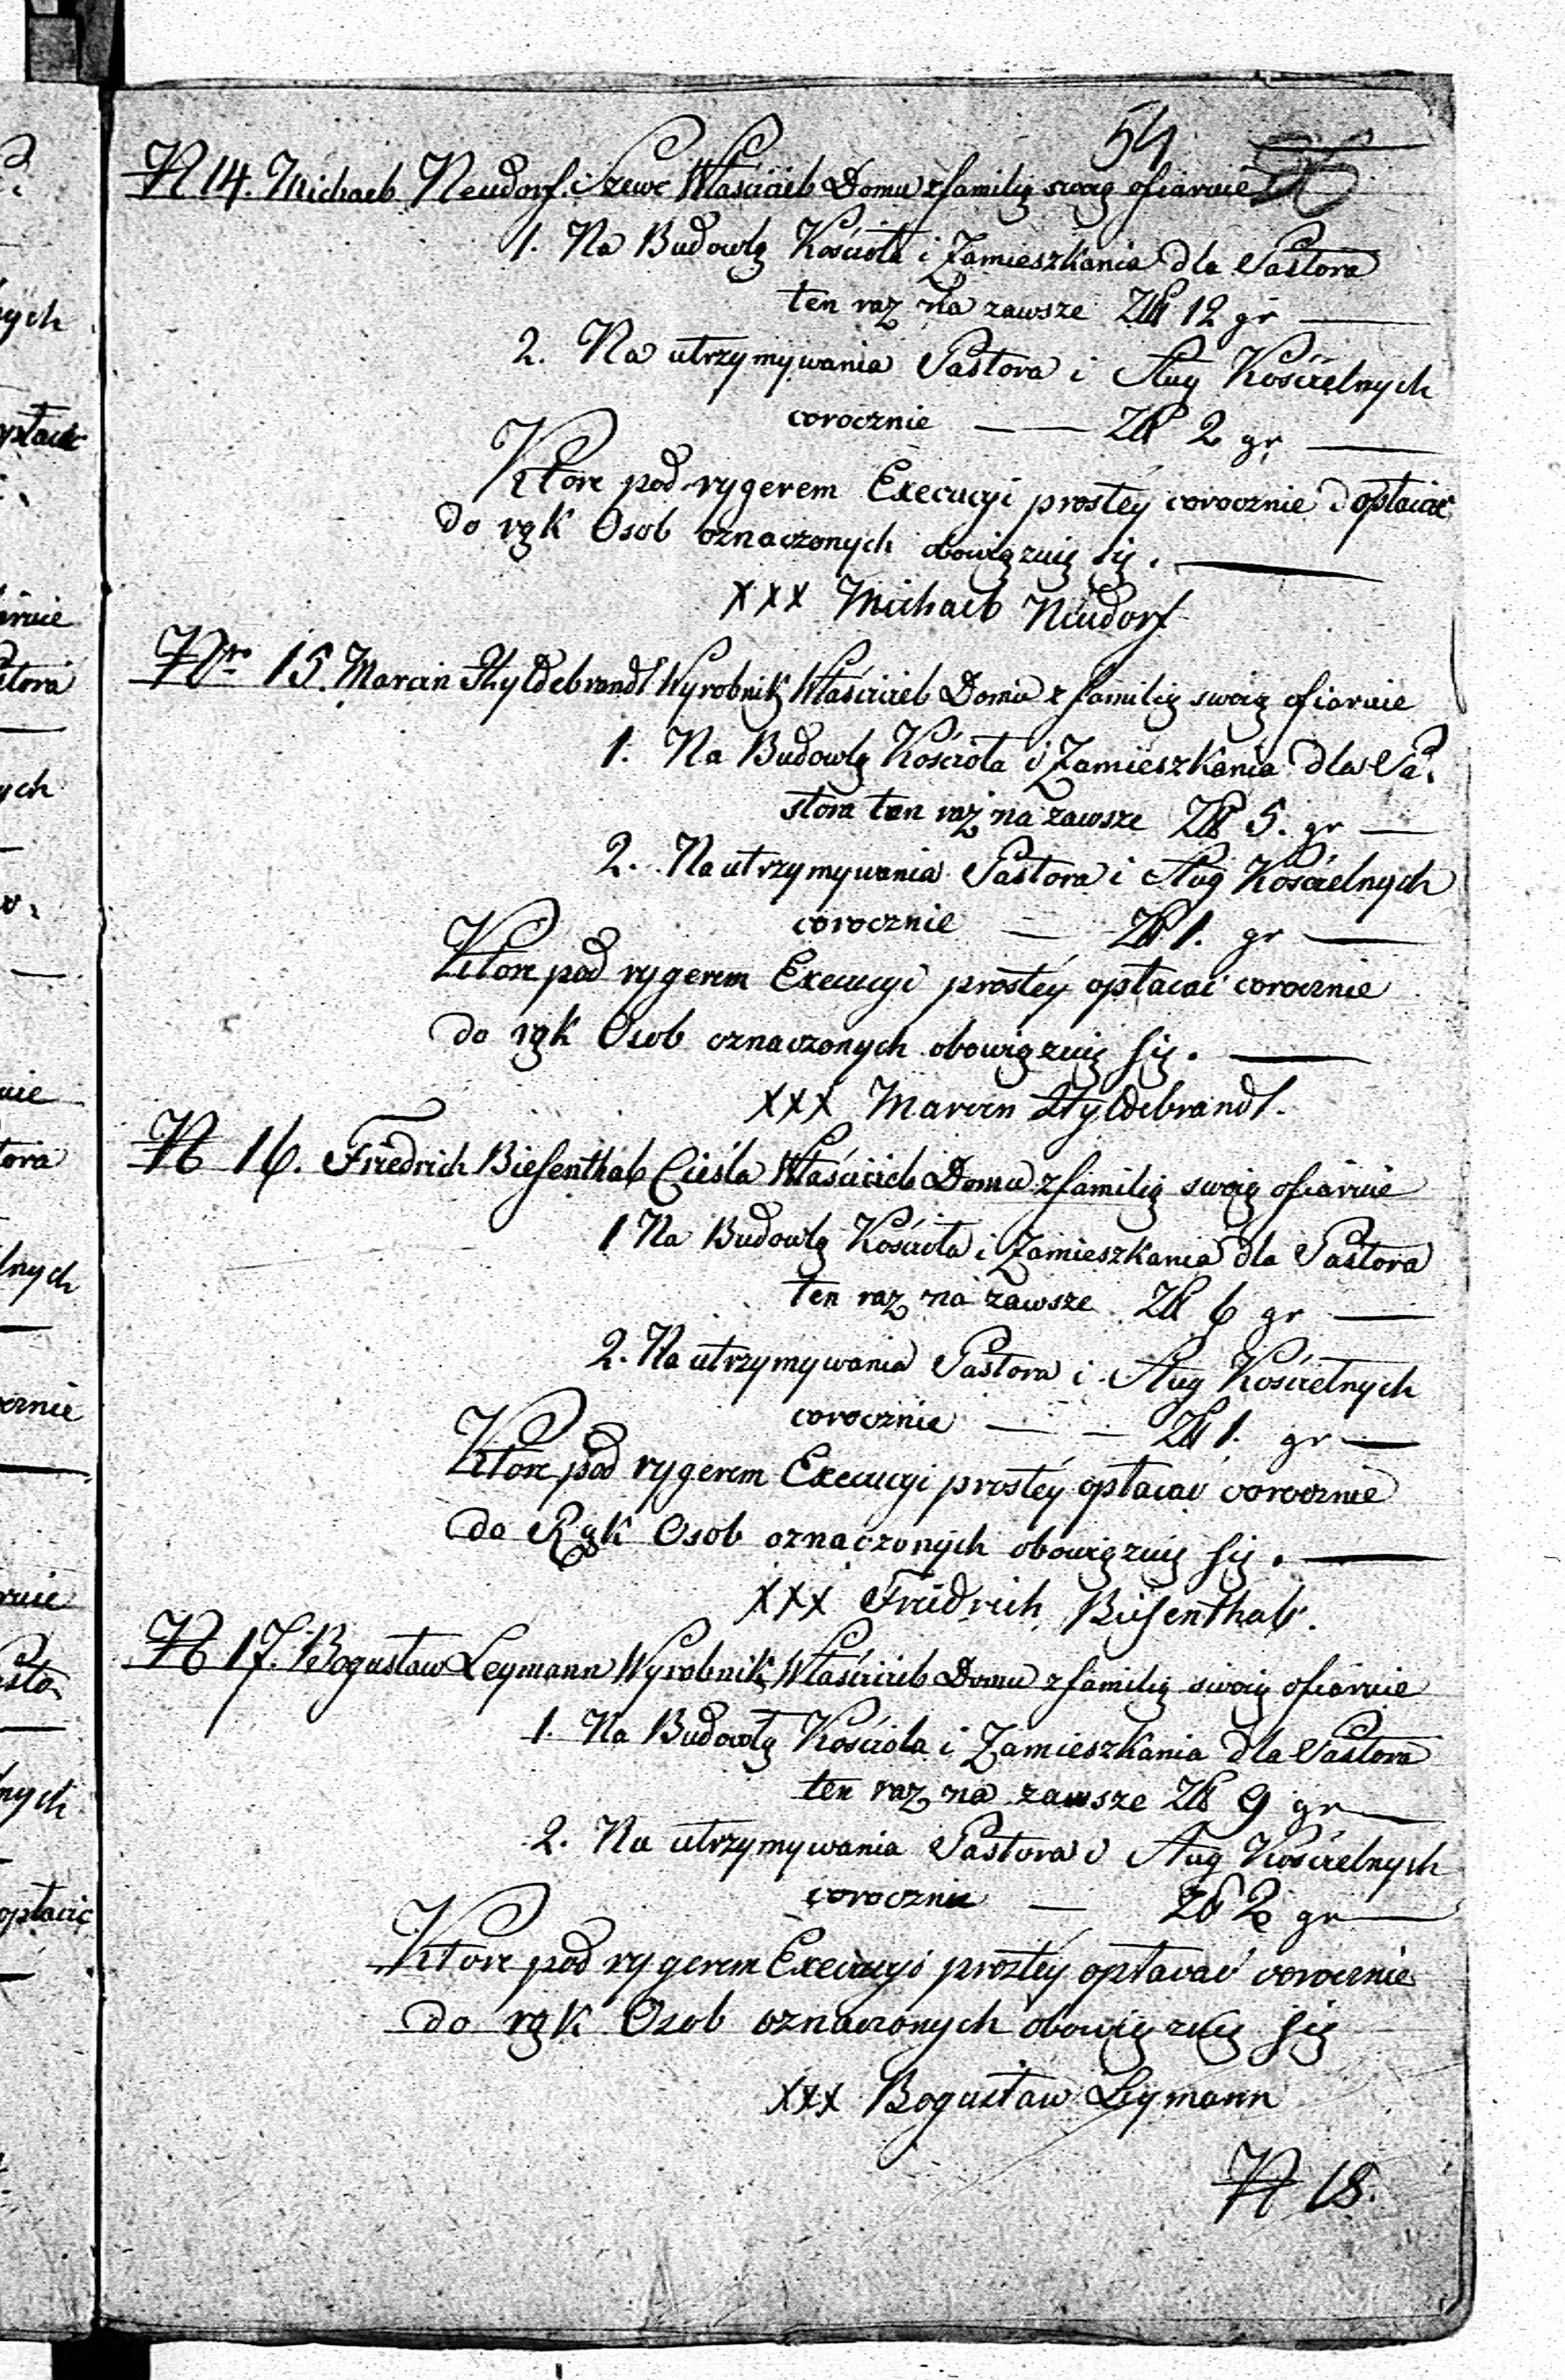 54
N 14. Michaeb Neudorf. Szewc Właściciel Domu z familią swoią ofiaruie
1. Na Budowlą Kościoła i Zamieszkania dla Pastora
ten raz na zawsze Złt 12 gr —
2. Na utrzymywania Pastora i Sług Kościelnych
corocznie — — Złt 2 gr —
Ktore pod rygerem Execucyi prostéy corocznie dopłacać
do rąk Osob oznaczonych obowiązuię się. —
XXX Michaeb Neudorf
Nro 15. Marcin Hyldebrandt Wyrobnik Właściciel Domu z familią swoią ofiaruie
1. Na Budowlą Kościoła i Zamieszkania dla Pa.
stora ten raz na zawsze Złt 5. gr —
2. Na utrzymywania Pastora i Sług Kościelnych
corocznie — Złt 1. gr —
Ktore pod rygerem Execucyi prostéy opłacać corocznie
do rąk Osob oznaczonych obowiązuię się. —
XXX Marcin Hyldebrandt.
N 16. Friedrich Biesenthab Cieśla Właściciel Domu z familią swoią ofiaruie
1 Na Budowlą Kościoła i Zamieszkania dla Pastora
ten raz na zawsze Złt 6 gr —
2. Na utrzymywania Pastora i Sług Kościelnych
corocznie — — Złt 1. gr —
Ktore pod rygerem Execucyi prostéy opłacać corocznie
do Rąk Osob oznaczonych obowiązuię się. —
XXX Freidrich Biesenthab.
N 17. Bogusław Leymann Wyrobnik Właściciel Domu z familią swoią ofiaruie
1. Na Budowlą Kościoła i Zamieszkania dla Pastora
ten raz na zawsze Złt 9 gr —
2. Na utrzymywania Pastora i Sług Kościelnych
corocznie — Złt 2 gr —
Ktore pod rygerem Execucyi prostéy opłacać corocznie
do rąk Osob oznaczonych obowiązuię się
XXX Bogusław Leymann
N 18.